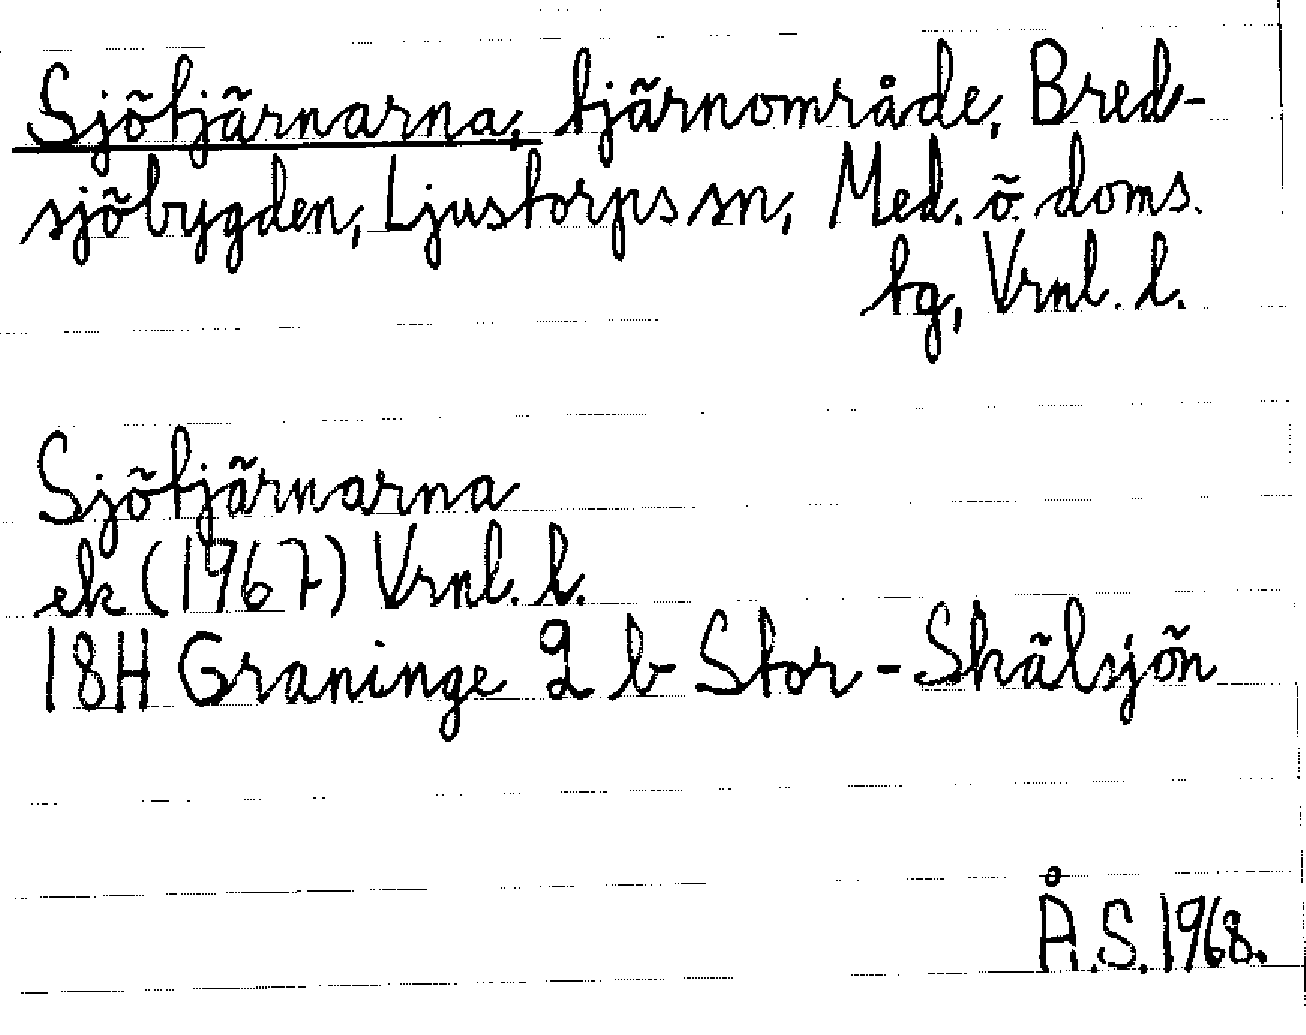 Sjötjärnarna, tjärnområde, Bred-
sjöbygden, Ljustorps sn, Med. ö. doms.
tg, Vrnl. l.
Sjötjärnarna
ek (1967) Vrnl. l.
18H Graninge 2 b Stor-Skälsjön
Å.S. 1968.